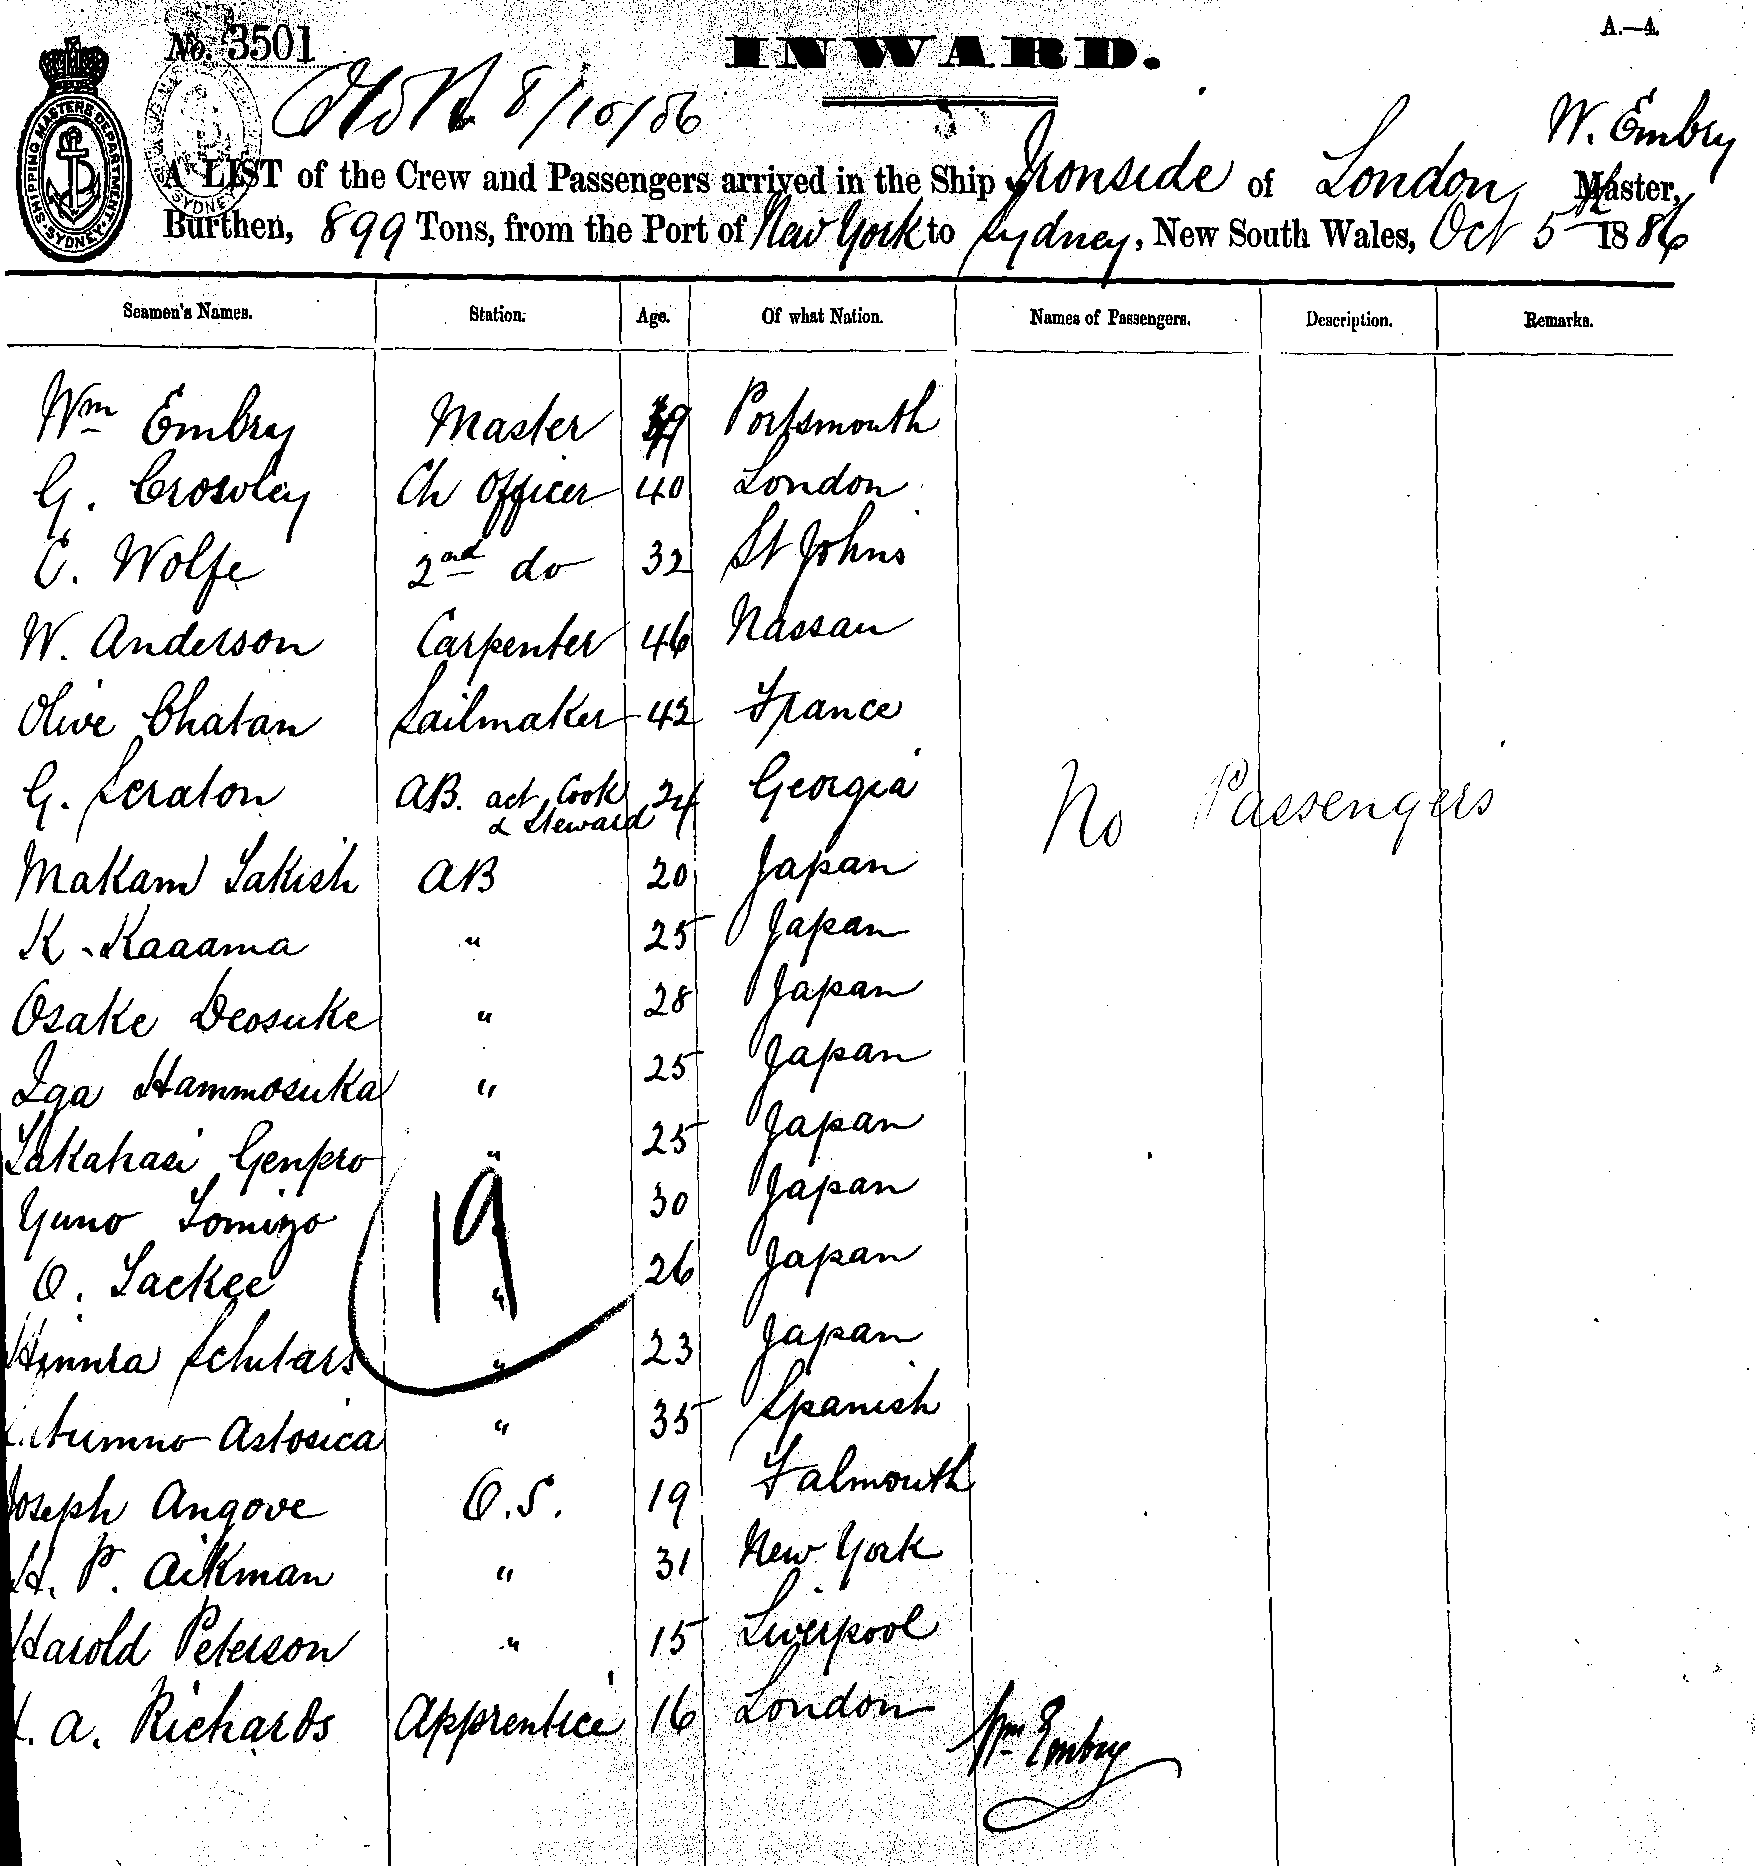 No. 3501
INWARD.
A.—4.
8/10/86
W. Embry
A LIST of the Crew and Passengers arrived in the Ship Ironside of London, Master,
Burthen, 899 Tons, from the Port of New York to Sydney, New South Wales, Oct 5th 1886
SHIPPING MASTERS DEPARTMENT SYDNEY
Seamen's Names. Station. Age. Of what Nation. Names of Passengers. Description. Remarks.
Wm Embry Master 39 Portsmouth
G. Crosvley Ch Officer 40 London
C. Wolfe 2nd do 32 St Johns
W. Anderson Carpenter 46 Nassau
Olive Chatan Sailmaker 42 France
G. Scraton AB. act Cook & Steward 24 Georgia
No Passengers
Makam Sakish AB 20 Japan
K. Kaaama " 25 Japan
Osake Deosuke " 28 Japan
Iga Hammosuka " 25 Japan
Takahasi Genpro " 25 Japan
Yuno Tomizo 30 Japan
19
O. Tackee " 26 Japan
Schutars " 23 Japan
Astosica " 35 Spanish
Joseph Angove O.S. 19 Falmouth
H. P. Aikman " 31 New York
Harold Peterson " 15 Liverpool
A. Richards Apprentice 16 London
Wm Embry